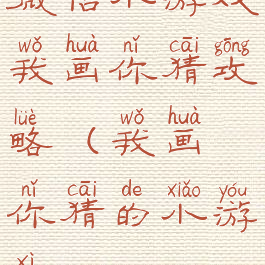 wǒ huà nǐ cāi gōng
我画你猜攻
lüè wǒ huà
略（我画
nǐ cāi de xiǎo yóu
你猜的小游
xì